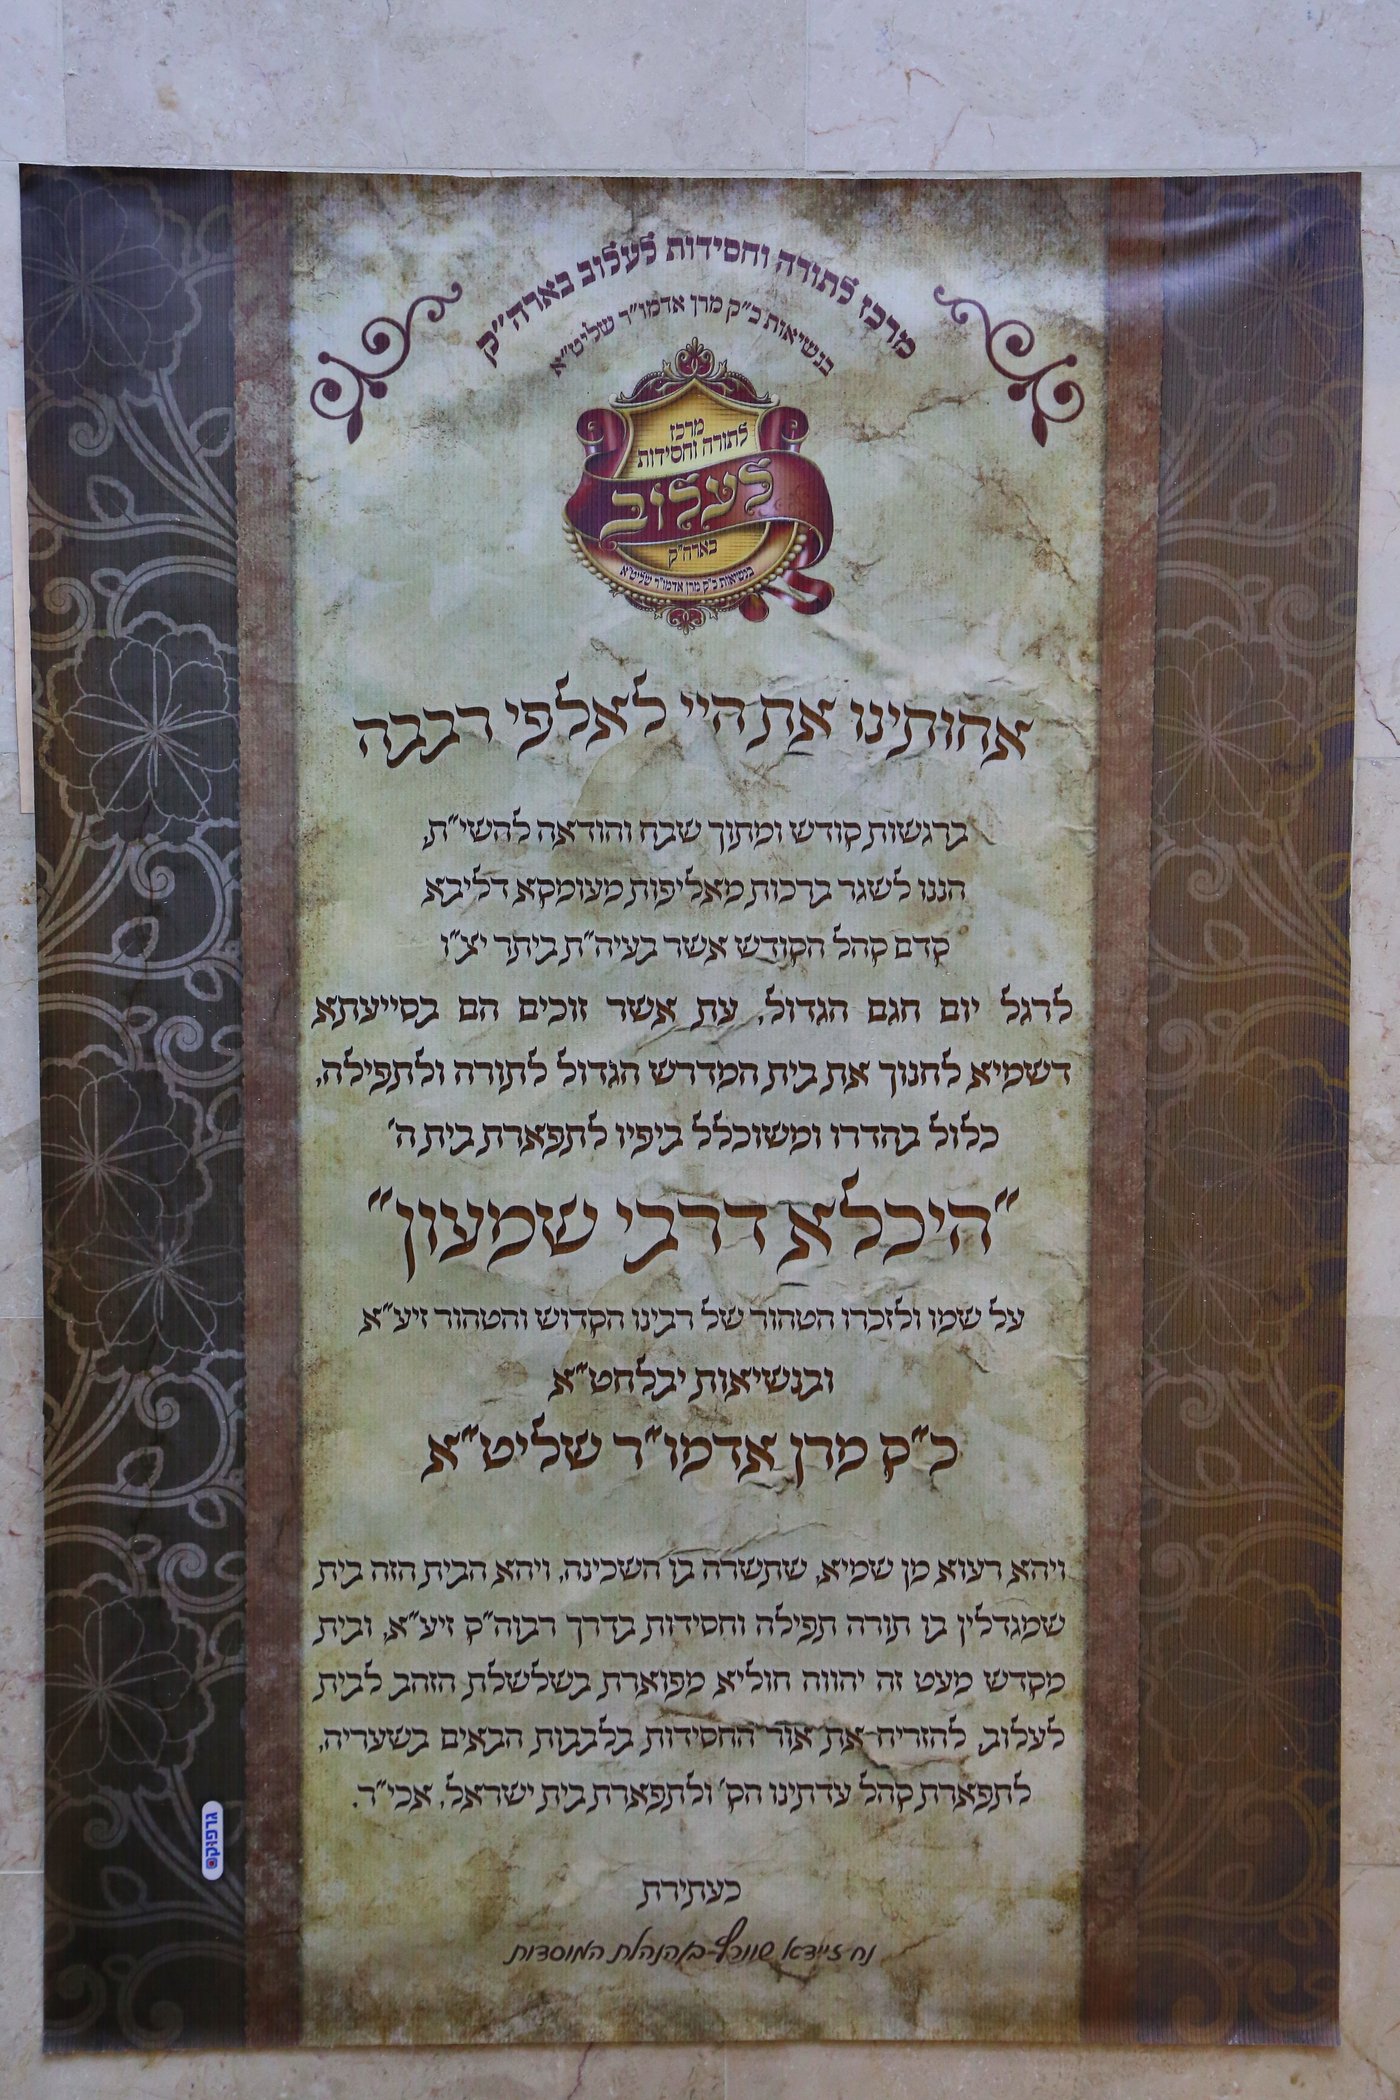 מרכז לתורה וחסידות לעלוב בארה״ק
בנשיאות כ״ק מרן אדמו״ר שליט״א
מרכז
לתורה וחסידות
לעלוב
בארה״ק
בנשיאות כ״ק מרן אדמו״ר שליט״א
אחותינו את היי לאלפי רבבה
ברגשות קודש ומתוך שבח והודאה להשי״ת,
הננו לשגר ברכות מאליפות מעומקא דליבא
קדם קהל הקודש אשר בעיה״ת ביתר יצ״ו
לרגל יום חגם הגדול, עת אשר זוכים הם בסייעתא
דשמיא לחנוך את בית המדרש הגדול לתורה ולתפילה,
כלול בהדרו ומשוכלל ביפיו לתפארת בית ה׳
״היכלא דרבי שמעון״
על שמו ולזכרו הטהור של רבינו הקדוש והטהור זיע״א
ובנשיאות יבלחט״א
כ״ק מרן אדמו״ר שליט״א
ויהא רעוא מן שמיא, שתשרה בו השכינה, ויהא הבית הזה בית
שמגדלין בו תורה תפילה וחסידות בדרך רבוה״ק זיע״א, ובית
מקדש מעט זה יהווה חוליא מפוארת בשלשלת הזהב לבית
לעלוב, להזריח את אור החסידות בלבבות הבאים בשעריה,
לתפארת קהל עדתינו הק׳ ולתפארת בית ישראל, אכי״ר.
כעתירת
נח זיידא שווכלף בהנהלת המוסדות
גרפוקס